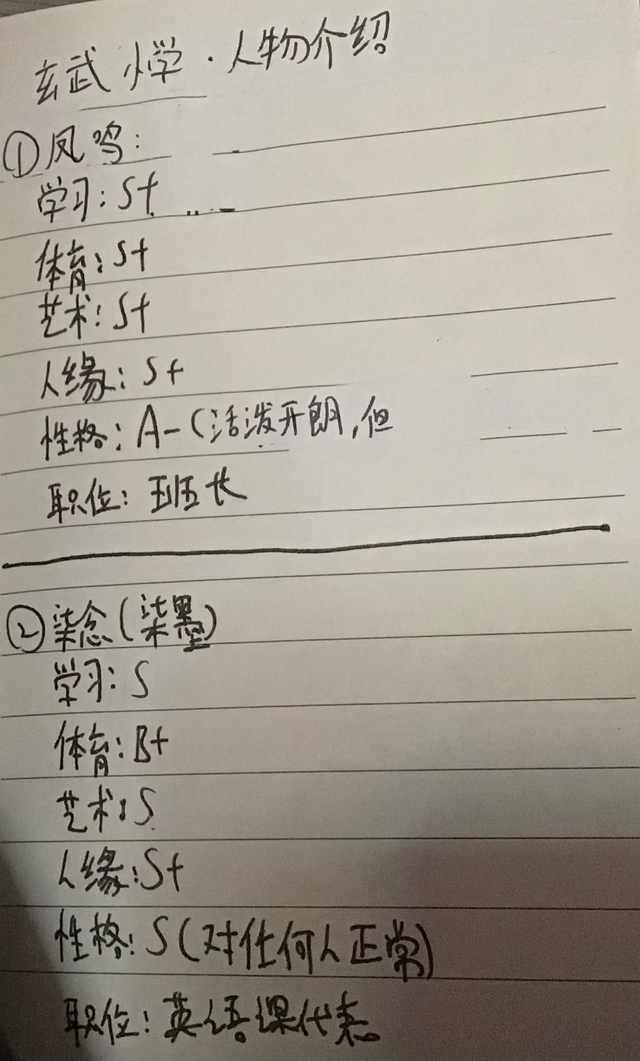 玄武小学·人物介绍
①凤鸣:
学习:S+
体育:S+
艺术:S+
人缘:S+
性格:A-(活泼开朗,但
职位:班长
②染念(染墨)
学习:S
体育:B+
艺术:S
人缘:S+
性格:S(对任何人正常)
职位:英语课代表